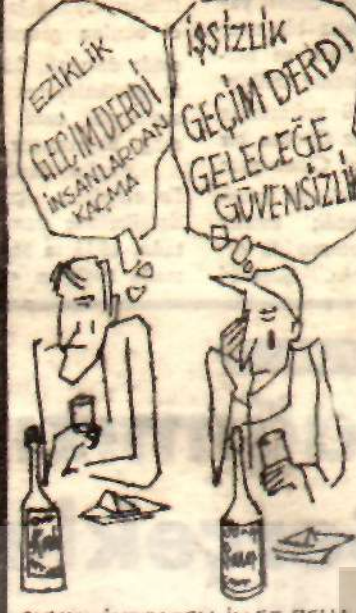 EZİKLİK
GEÇİM DERDİ
İNSANLARDAN
KAÇMA
İŞSİZLİK
GEÇİM DERDİ
GELECEĞE
GÜVENSİZLİK